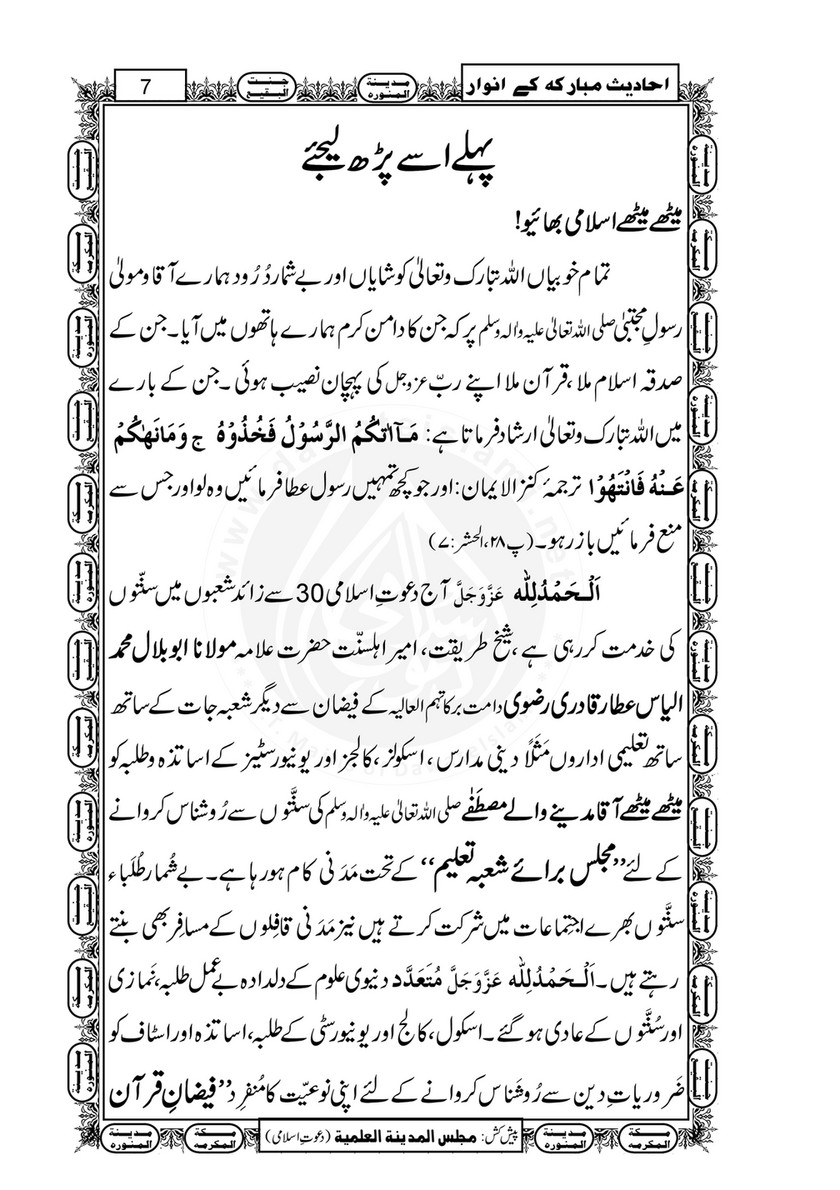 احادیث مبارکہ کے انوار
مدینۃ المنورہ
جنت البقیع
7
پہلے اسے پڑھ لیجئے
میٹھے میٹھے اسلامی بھائیو!
تمام خوبیاں اللہ تبارک وتعالیٰ کو شایاں اور بے شمار دُرُود ہمارے آقا ومولیٰ
رسولِ مجتبیٰ صلی اللہ تعالیٰ علیہ والہ وسلم پر کہ جن کا دامن کرم ہمارے ہاتھوں میں آیا۔ جن کے
صدقہ اسلام ملا، قرآن ملا اپنے ربّ عزوجل کی پہچان نصیب ہوئی۔ جن کے بارے
میں اللہ تبارک وتعالیٰ ارشاد فرماتا ہے: مَاۤ اٰتٰكُمُ الرَّسُوْلُ فَخُذُوْهُ ج وَمَا نَهٰكُمْ
عَنْهُ فَانْتَهُوْا ترجمۂ کنز الایمان: اور جو کچھ تمہیں رسول عطا فرمائیں وہ لو اور جس سے
منع فرمائیں باز رہو۔ (پ۲۸، الحشر: ۷)
اَلْحَمْدُلِلّٰه عَزَّوَجَلَّ آج دعوتِ اسلامی 30 سے زائد شعبوں میں سنّتوں
کی خدمت کررہی ہے، شیخ طریقت، امیر اہلسنّت حضرت علامہ مولانا ابو بلال محمد
الیاس عطار قادری رضوی دامت برکاتہم العالیہ کے فیضان سے دیگر شعبہ جات کے ساتھ
ساتھ تعلیمی اداروں مَثَلًا دینی مدارس، اسکولز، کالجز اور یونیورسٹیز کے اساتذہ وطلبہ کو
میٹھے میٹھے آقا مدینے والے مصطَفٰے صلی اللہ تعالیٰ علیہ والہ وسلم کی سنّتوں سے رُوشناس کروانے
کے لئے ’’مجلس برائے شعبہ تعلیم‘‘ کے تحت مَدَنی کام ہورہا ہے۔ بے شُمار طُلَباء
سنّتوں بھرے اجتماعات میں شرکت کرتے ہیں نیز مَدَنی قافِلوں کے مسافر بھی بنتے
رہتے ہیں۔ اَلْحَمْدُلِلّٰه عَزَّوَجَلَّ مُتَعَدَّد دنیوی علوم کے دلدادہ بے عمل طلبہ، نَمازی
اور سُنّتوں کے عادی ہو گئے۔ اسکول، کالج اور یونیورسٹی کے طلبہ، اساتذہ اور اسٹاف کو
ضَروریاتِ دین سے رُوشَناس کروانے کے لئے اپنی نوعیّت کا مُنفرِد ’’فیضانِ قرآن
مکۃ المکرمہ
مدینۃ المنورہ
پیش کش: مجلس المدینة العلمیة (دعوتِ اسلامی)
مکۃ المکرمہ
مدینۃ المنورہ